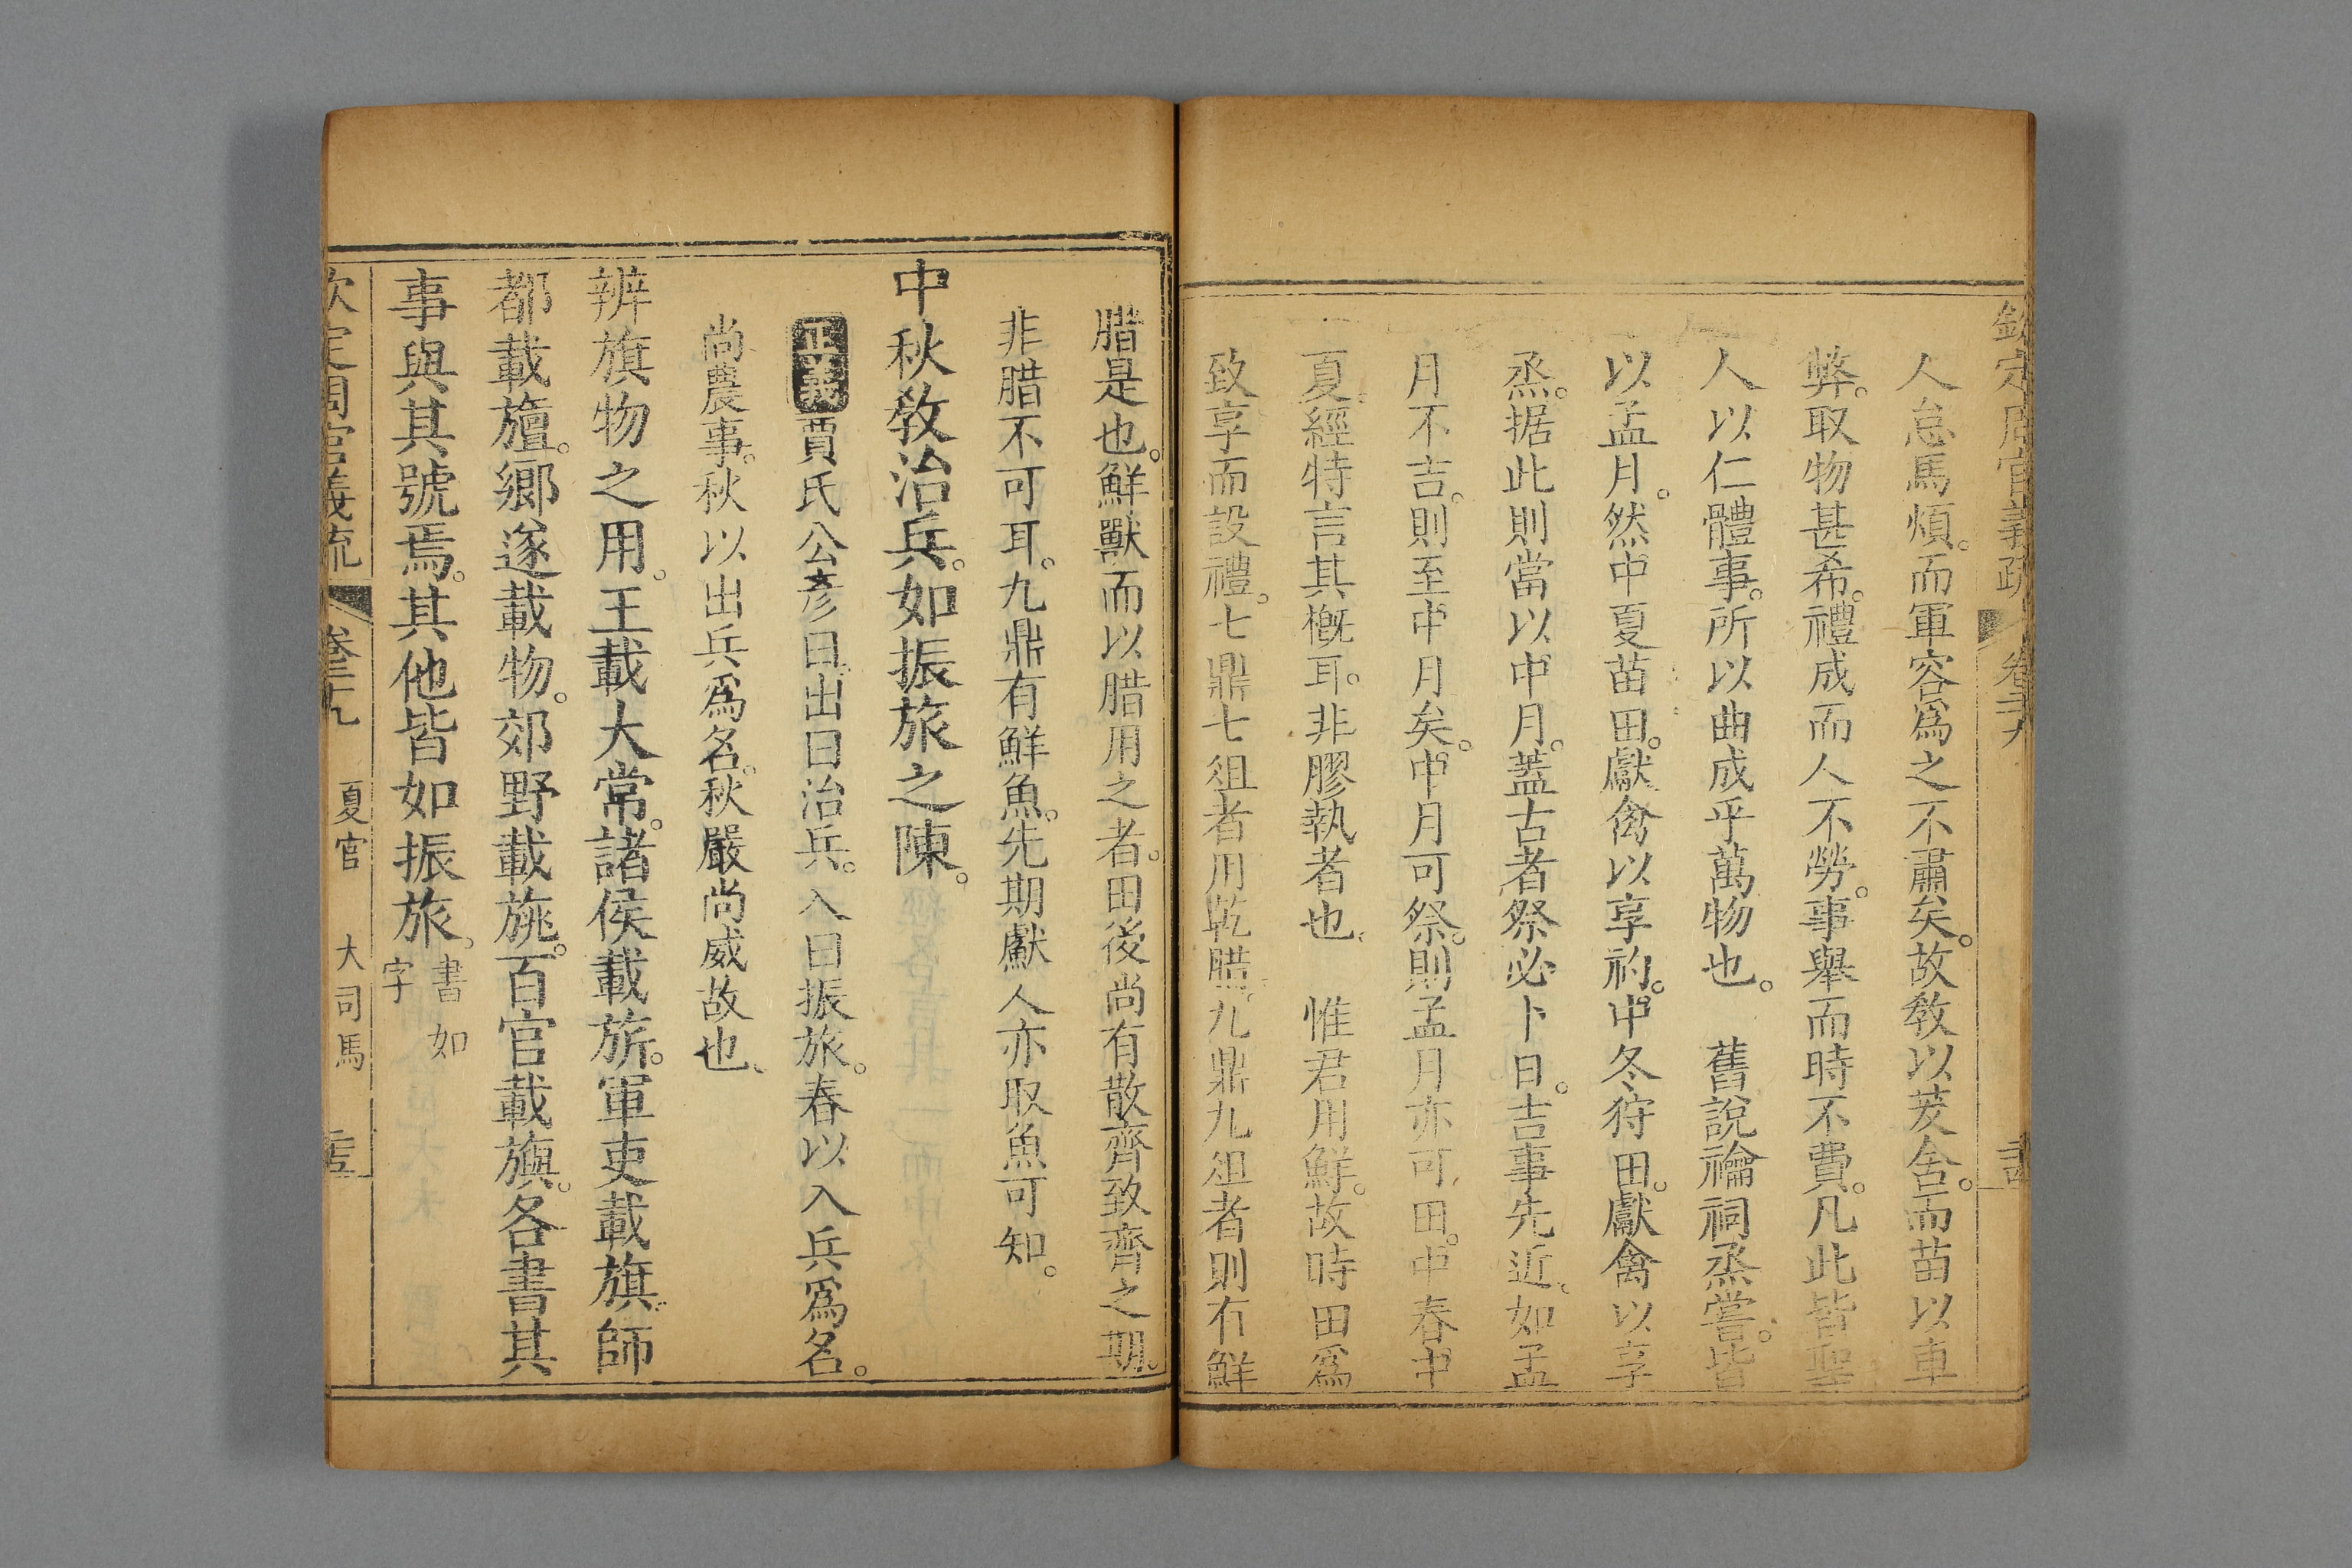 欽定周官義疏 卷二十九
人怠馬煩。而軍容爲之不肅矣。故敎以茇舍。而苗以車
弊。取物甚希。禮成而人不勞。事舉而時不費。凡此皆聖
人以仁體事。所以曲成乎萬物也。 舊說禴祠烝嘗。皆
以孟月。然中夏苗田。獻禽以享礿。中冬狩田。獻禽以享
烝。据此則當以中月。蓋古者祭必卜日。吉事先近、如孟
月不吉。則至中月矣。中月可祭。則孟月亦可田。中春中
夏。經特言其槪耳。非膠執者也、 惟君用鮮。故時田爲
致享而設禮。七鼎七俎者用乾腊。九鼎九俎者則有鮮
腊是也。鮮獸而以腊用之者。田後尚有散齊致齊之期。
非腊不可耳。九鼎有鮮魚。先期獻人亦取魚可知。
中秋敎治兵。如振旅之陳。
正義 賈氏公彥曰、出曰治兵。入曰振旅。春以入兵爲名。
尚農事。秋以出兵爲名。秋嚴尚威故也、
辨旗物之用。王載大常。諸侯載旂。軍吏載旗。師
都載旜。鄉遂載物。郊野載旐。百官載旟。各書其
事與其號焉。其他皆如振旅。書如
字
欽定周官義疏 卷二十九 夏官 大司馬